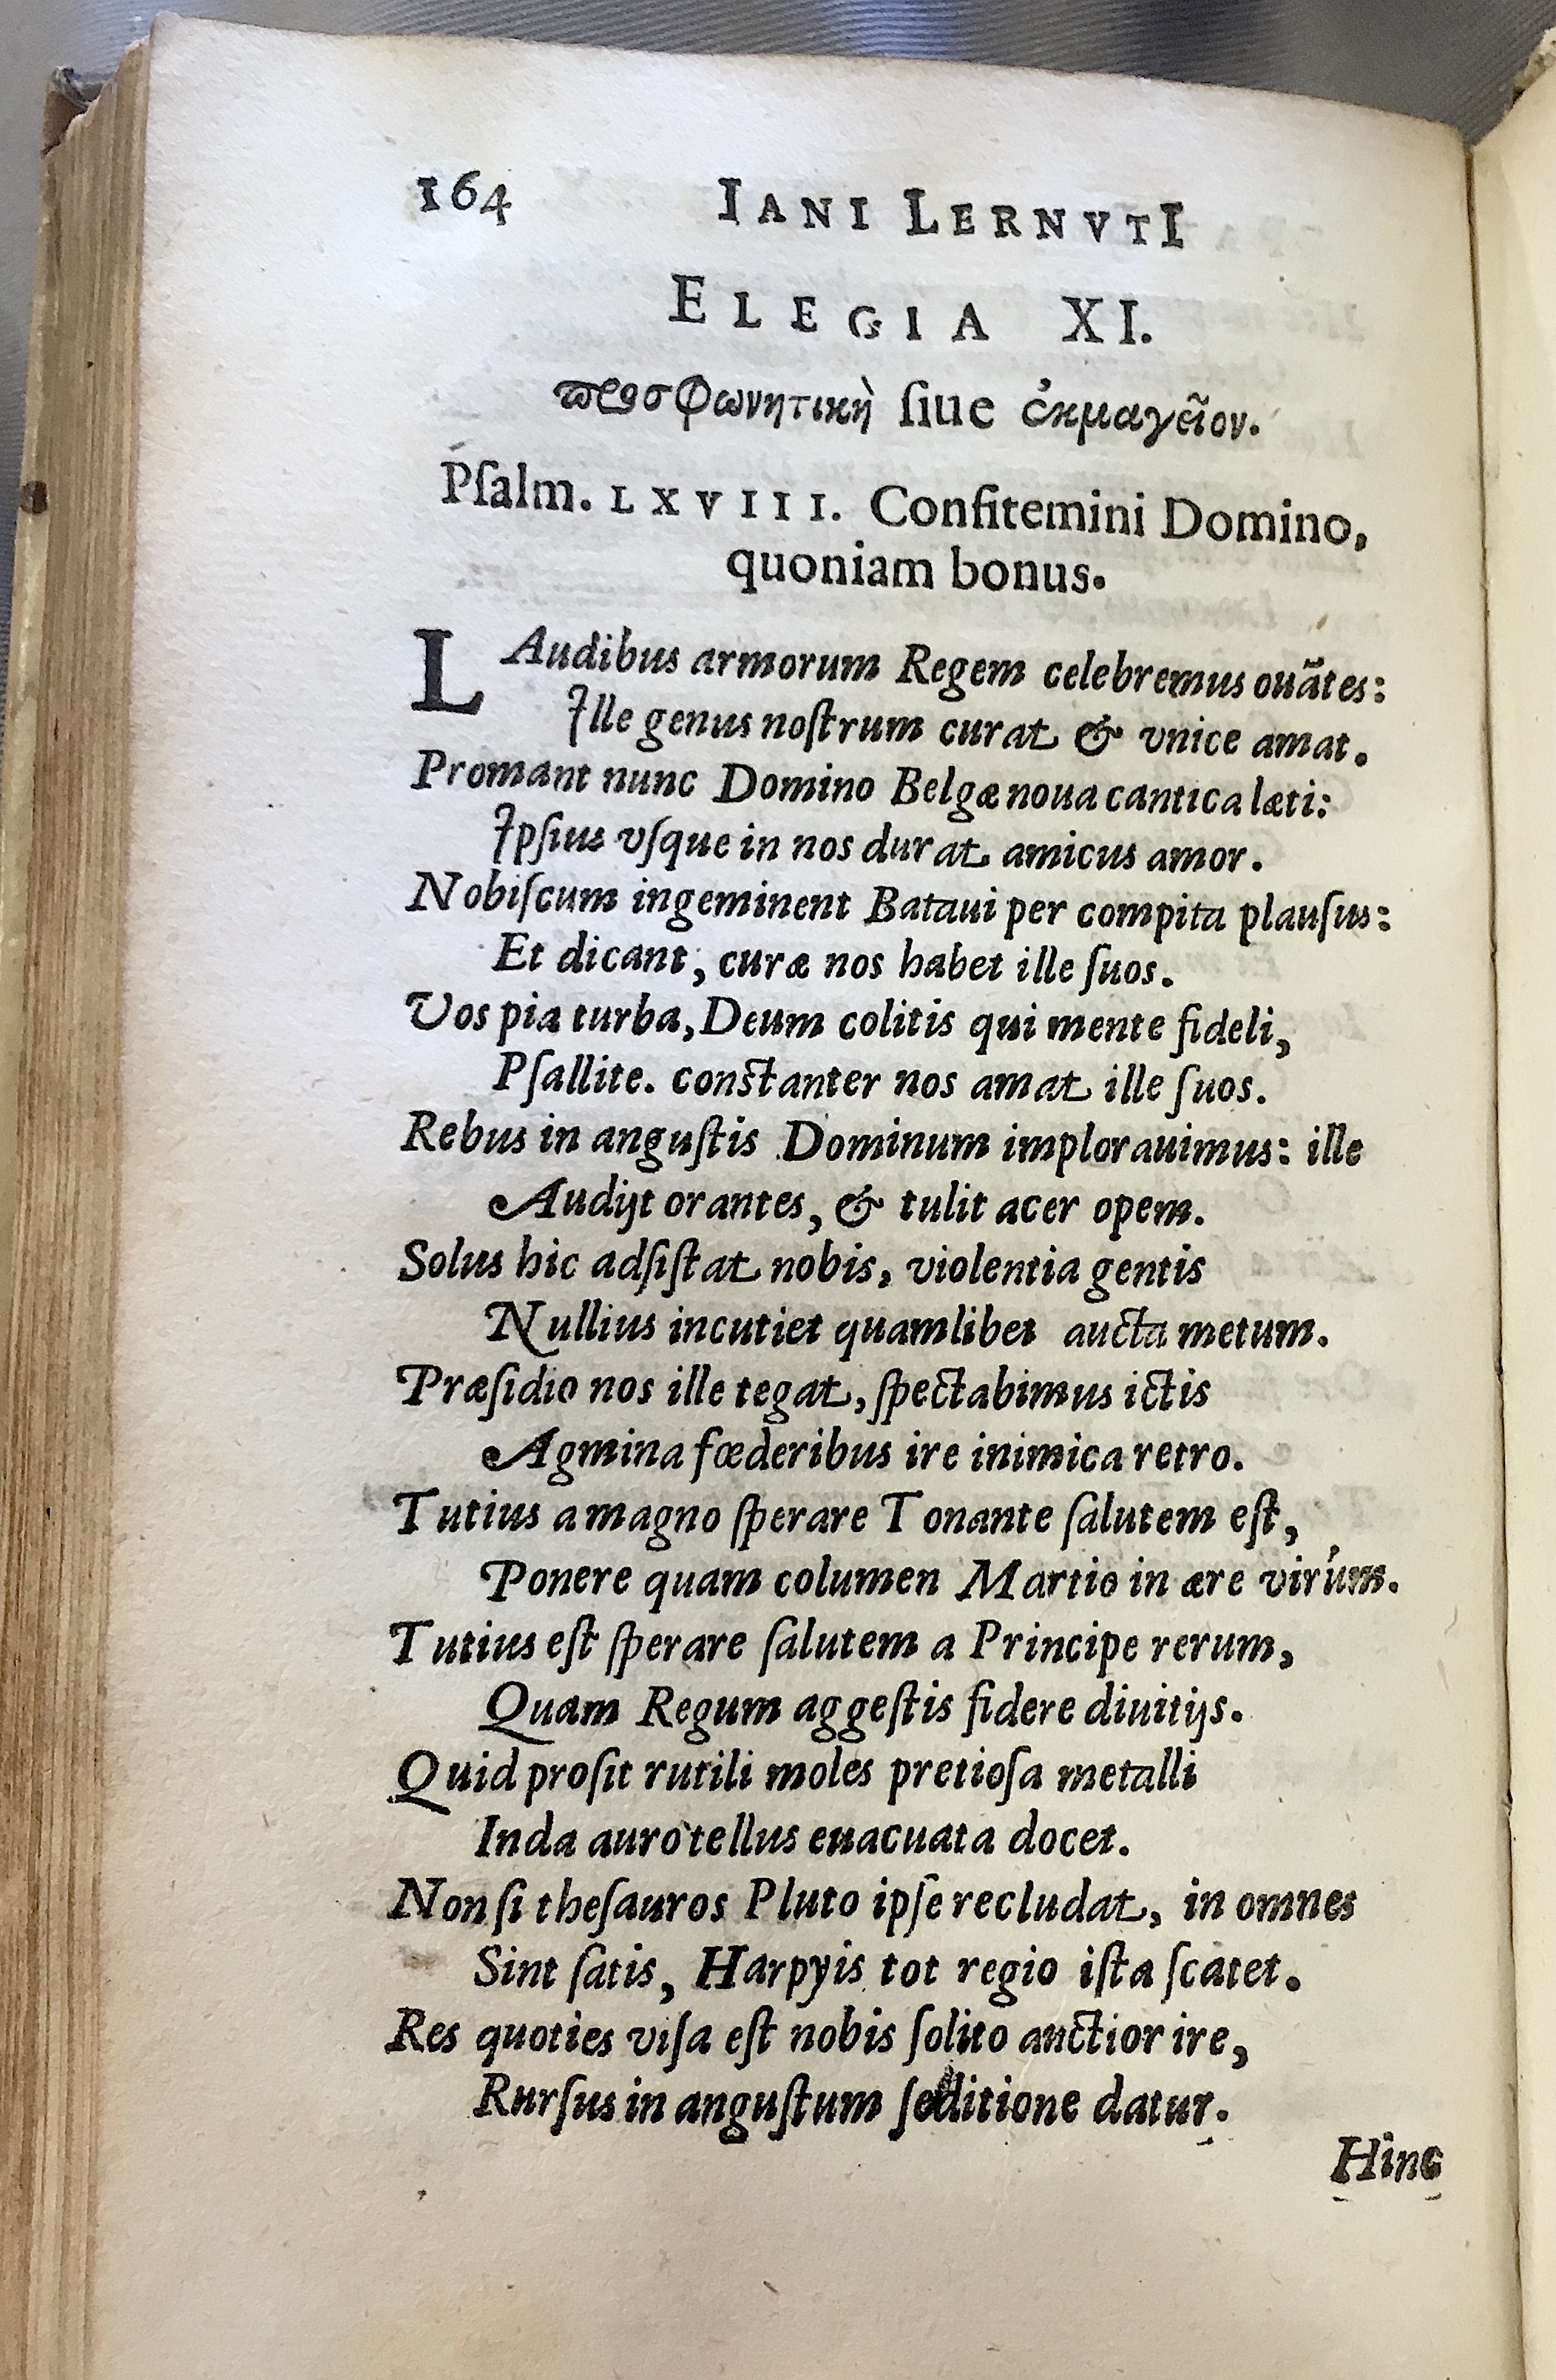 164 IANI LERNVTI
ELEGIA XI.
προσφωνητικὴ ſiue ἐκμαγεῖον.
Pſalm. LXVIII. Confitemini Domino,
quoniam bonus.
LAudibus armorum Regem celebremus ouātes:
Ille genus noſtrum curat & vnice amat.
Promant nunc Domino Belgæ noua cantica læti:
Ipſius vſque in nos durat amicus amor.
Nobiſcum ingeminent Bataui per compita plauſus:
Et dicant, curæ nos habet ille ſuos.
Vos pia turba, Deum colitis qui mente fideli,
Pſallite. conſtanter nos amat ille ſuos.
Rebus in anguſtis Dominum implorauimus: ille
Audijt orantes, & tulit acer opem.
Solus hic adſiſtat nobis, violentia gentis
Nullius incutiet quamlibet aucta metum.
Præſidio nos ille tegat, ſpectabimus ictis
Agmina fœderibus ire inimica retro.
Tutius a magno ſperare Tonante ſalutem eſt,
Ponere quam columen Martio in ære virúm.
Tutius eſt ſperare ſalutem a Principe rerum,
Quam Regum aggeſtis fidere diuitijs.
Quid proſit rutili moles pretioſa metalli
Inda auro tellus euacuata docet.
Non ſi theſauros Pluto ipſe recludat, in omnes
Sint ſatis, Harpyis tot regio iſta ſcatet.
Res quoties viſa eſt nobis ſolito auctior ire,
Rurſus in anguſtum ſeditione datur.
Hinc